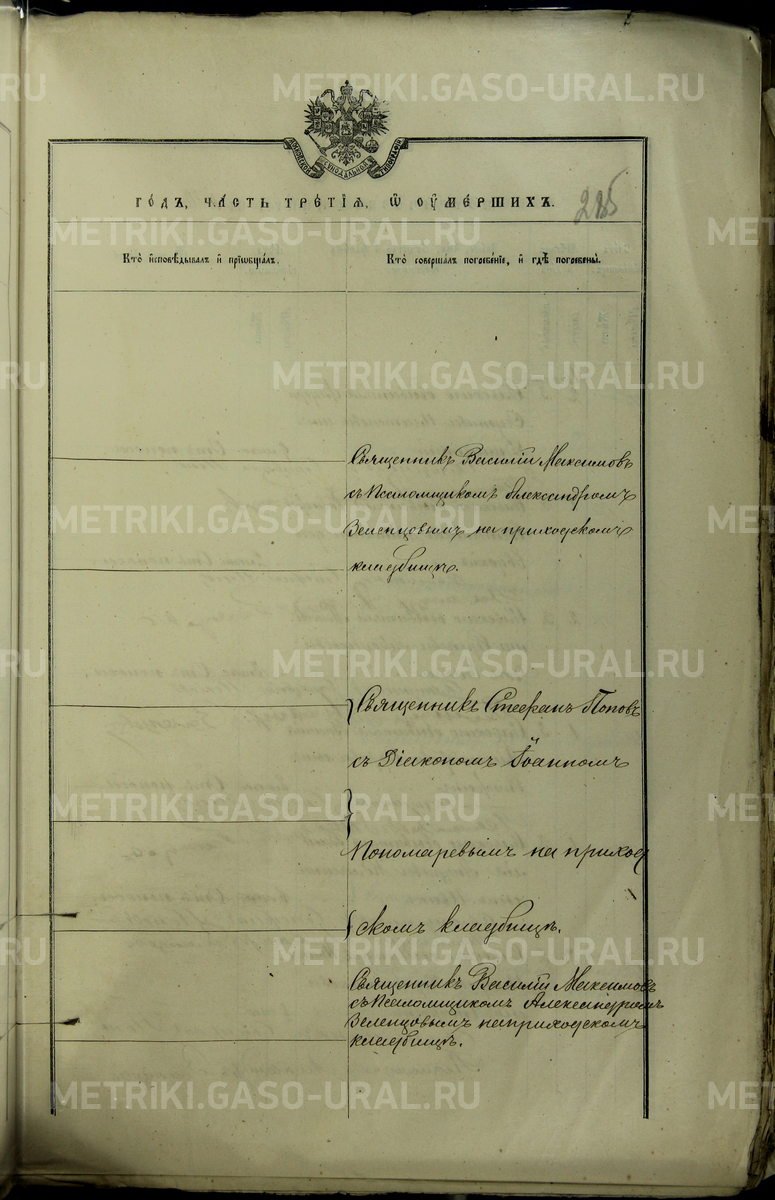 МОСКОВСКОЙ СѴНОДАЛЬНОЙ ТИПОГРАФІИ
ГО́ДЪ, ЧА́СТЬ ТРЕ́ТІѦ, Ѡ҆ ОУ҆МЕ́РШИХЪ.
285
Кто̀ и҆сповѣ́дывалъ и҆ прїѡбща́лъ.
Кто̀ соверша́лъ погребе́нїе, и҆ гдѣ̀ погребены̀.
Священникъ Василій Максимовъ
съ Псаломщикомъ Александромъ
Зеленцовымъ на приходскомъ
кладбищѣ.
Священникъ Стефанъ Поповъ
съ Діакономъ Іоанномъ
Пономаревымъ на приход
скомъ кладбищѣ.
Священникъ Василій Максимовъ
съ Псаломщикомъ Александромъ
Зеленцовымъ на приходскомъ
кладбищѣ.
METRIKI.GASO-URAL.RU